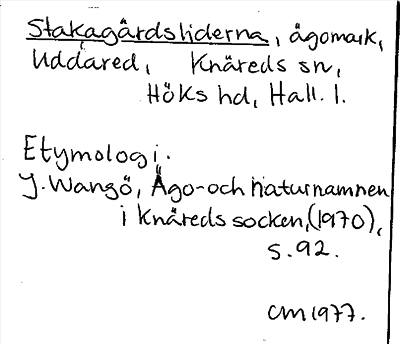 Stakagårdsliderna, ägomark,
Uddared, Knäreds sn,
Höks hd, Hall. l.
Etymologi.
J. Wangö, Ägo- och naturnamnen
i Knäreds socken, (1970),
s. 92.
CM 1977.